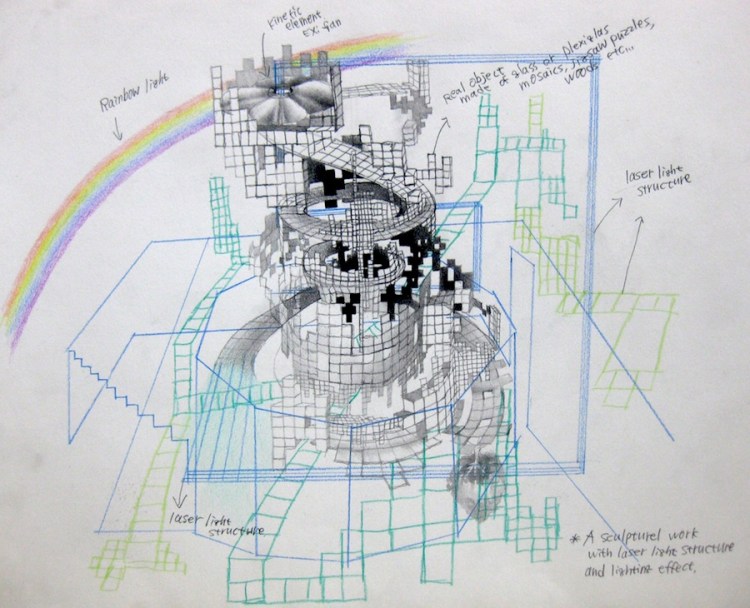 kinetic
element
ex. fan
Rainbow light
Real object
made of glass or plexiglas
mosaics, jigsaw puzzles,
woods etc...
laser light
structure
laser light
structure
* A sculpturel work
with laser light structure
and lighting effect.